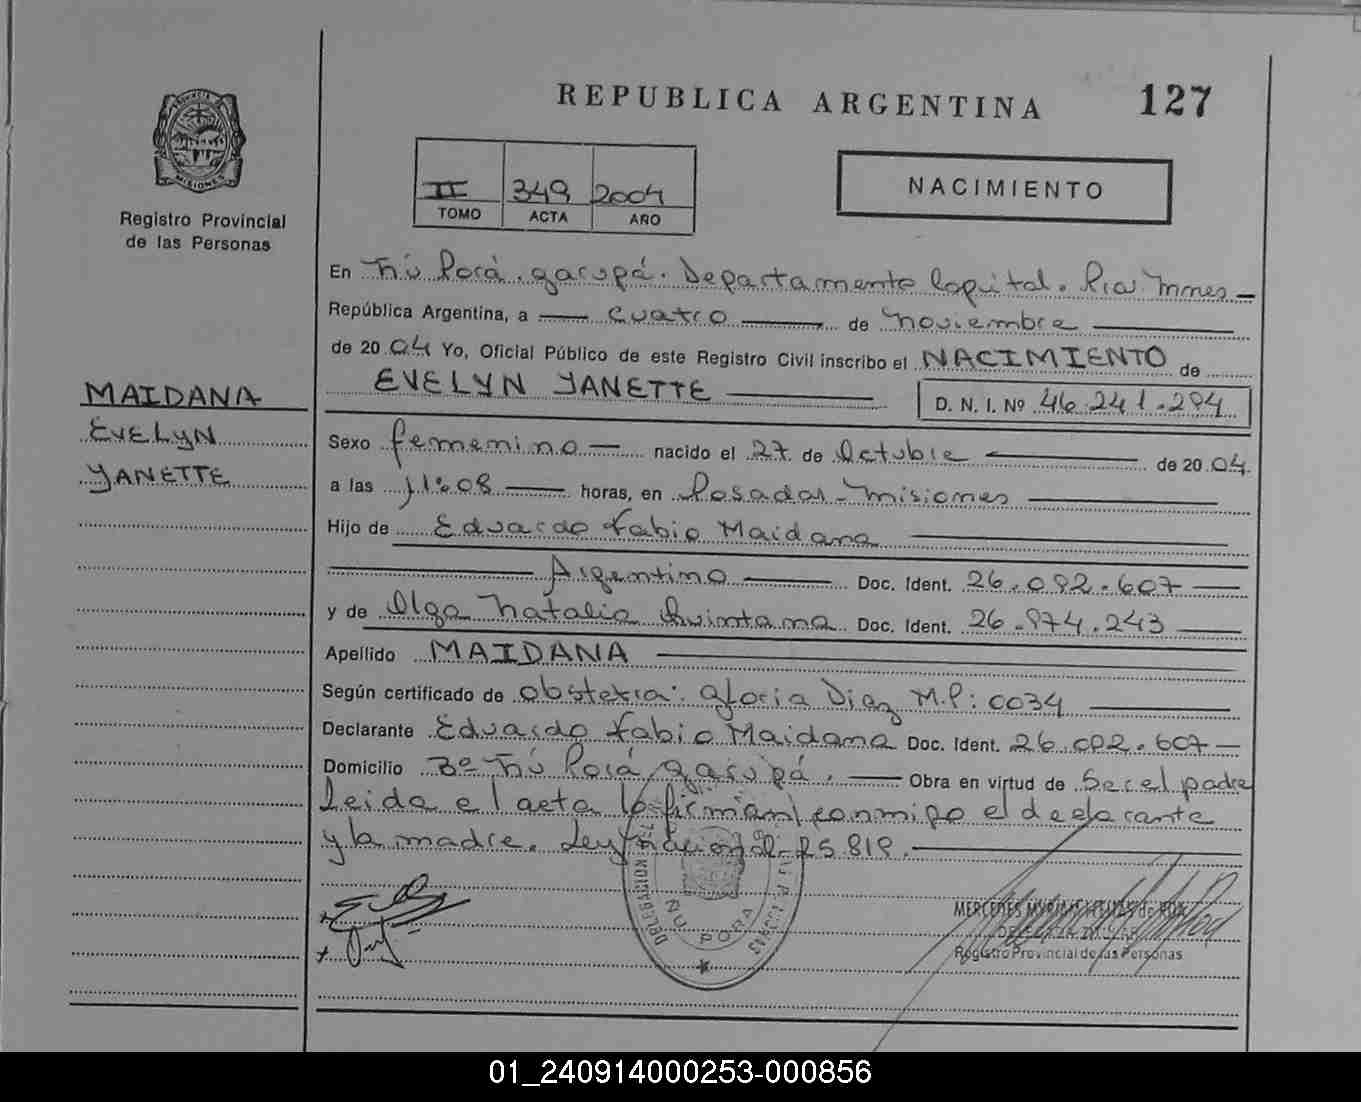 REPUBLICA ARGENTINA 127
PROVINCIA DE MISIONES
Registro Provincial
de las Personas
II 349 2004
TOMO ACTA AÑO
NACIMIENTO
En Ñú Porá. Garupá. Departamento Capital. Pcia Mnes
República Argentina, a cuatro de Noviembre
de 20 04 Yo, Oficial Público de este Registro Civil inscribo el NACIMIENTO de
EVELYN YANETTE D. N. I. Nº 46.241.294
MAIDANA
EVELYN
YANETTE
Sexo femenino nacido el 27 de Octubre de 20 04
a las 11:08 horas, en Posadas - Misiones
Hijo de Eduardo Fabio Maidana
Argentino Doc. Ident. 26.092.607
y de Olga Natalia Quintana Doc. Ident. 26.974.243
Apellido MAIDANA
Según certificado de obstetra: Gloria Diaz M.P: 0034
Declarante Eduardo Fabio Maidana Doc. Ident. 26.092.607
Domicilio Bº Ñú Porá, Garupá. Obra en virtud de Ser el padre
Leida el acta la firman conmigo el declarante
y la madre. Ley Nacional 25.819.
DELEGACION
ÑU PORA
MERCEDES de ROA
Registro Provincial de las Personas
01_240914000253-000856